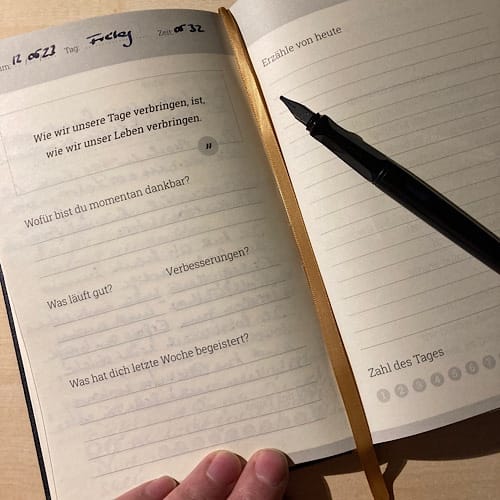 um: 12.05.23 Tag: Freitag Zeit: 05:32
Wie wir unsere Tage verbringen, ist,
wie wir unser Leben verbringen.
"
Wofür bist du momentan dankbar?
Was läuft gut?
Verbesserungen?
Was hat dich letzte Woche begeistert?
Erzähle von heute
Zahl des Tages
1 2 3 4 5 6 7